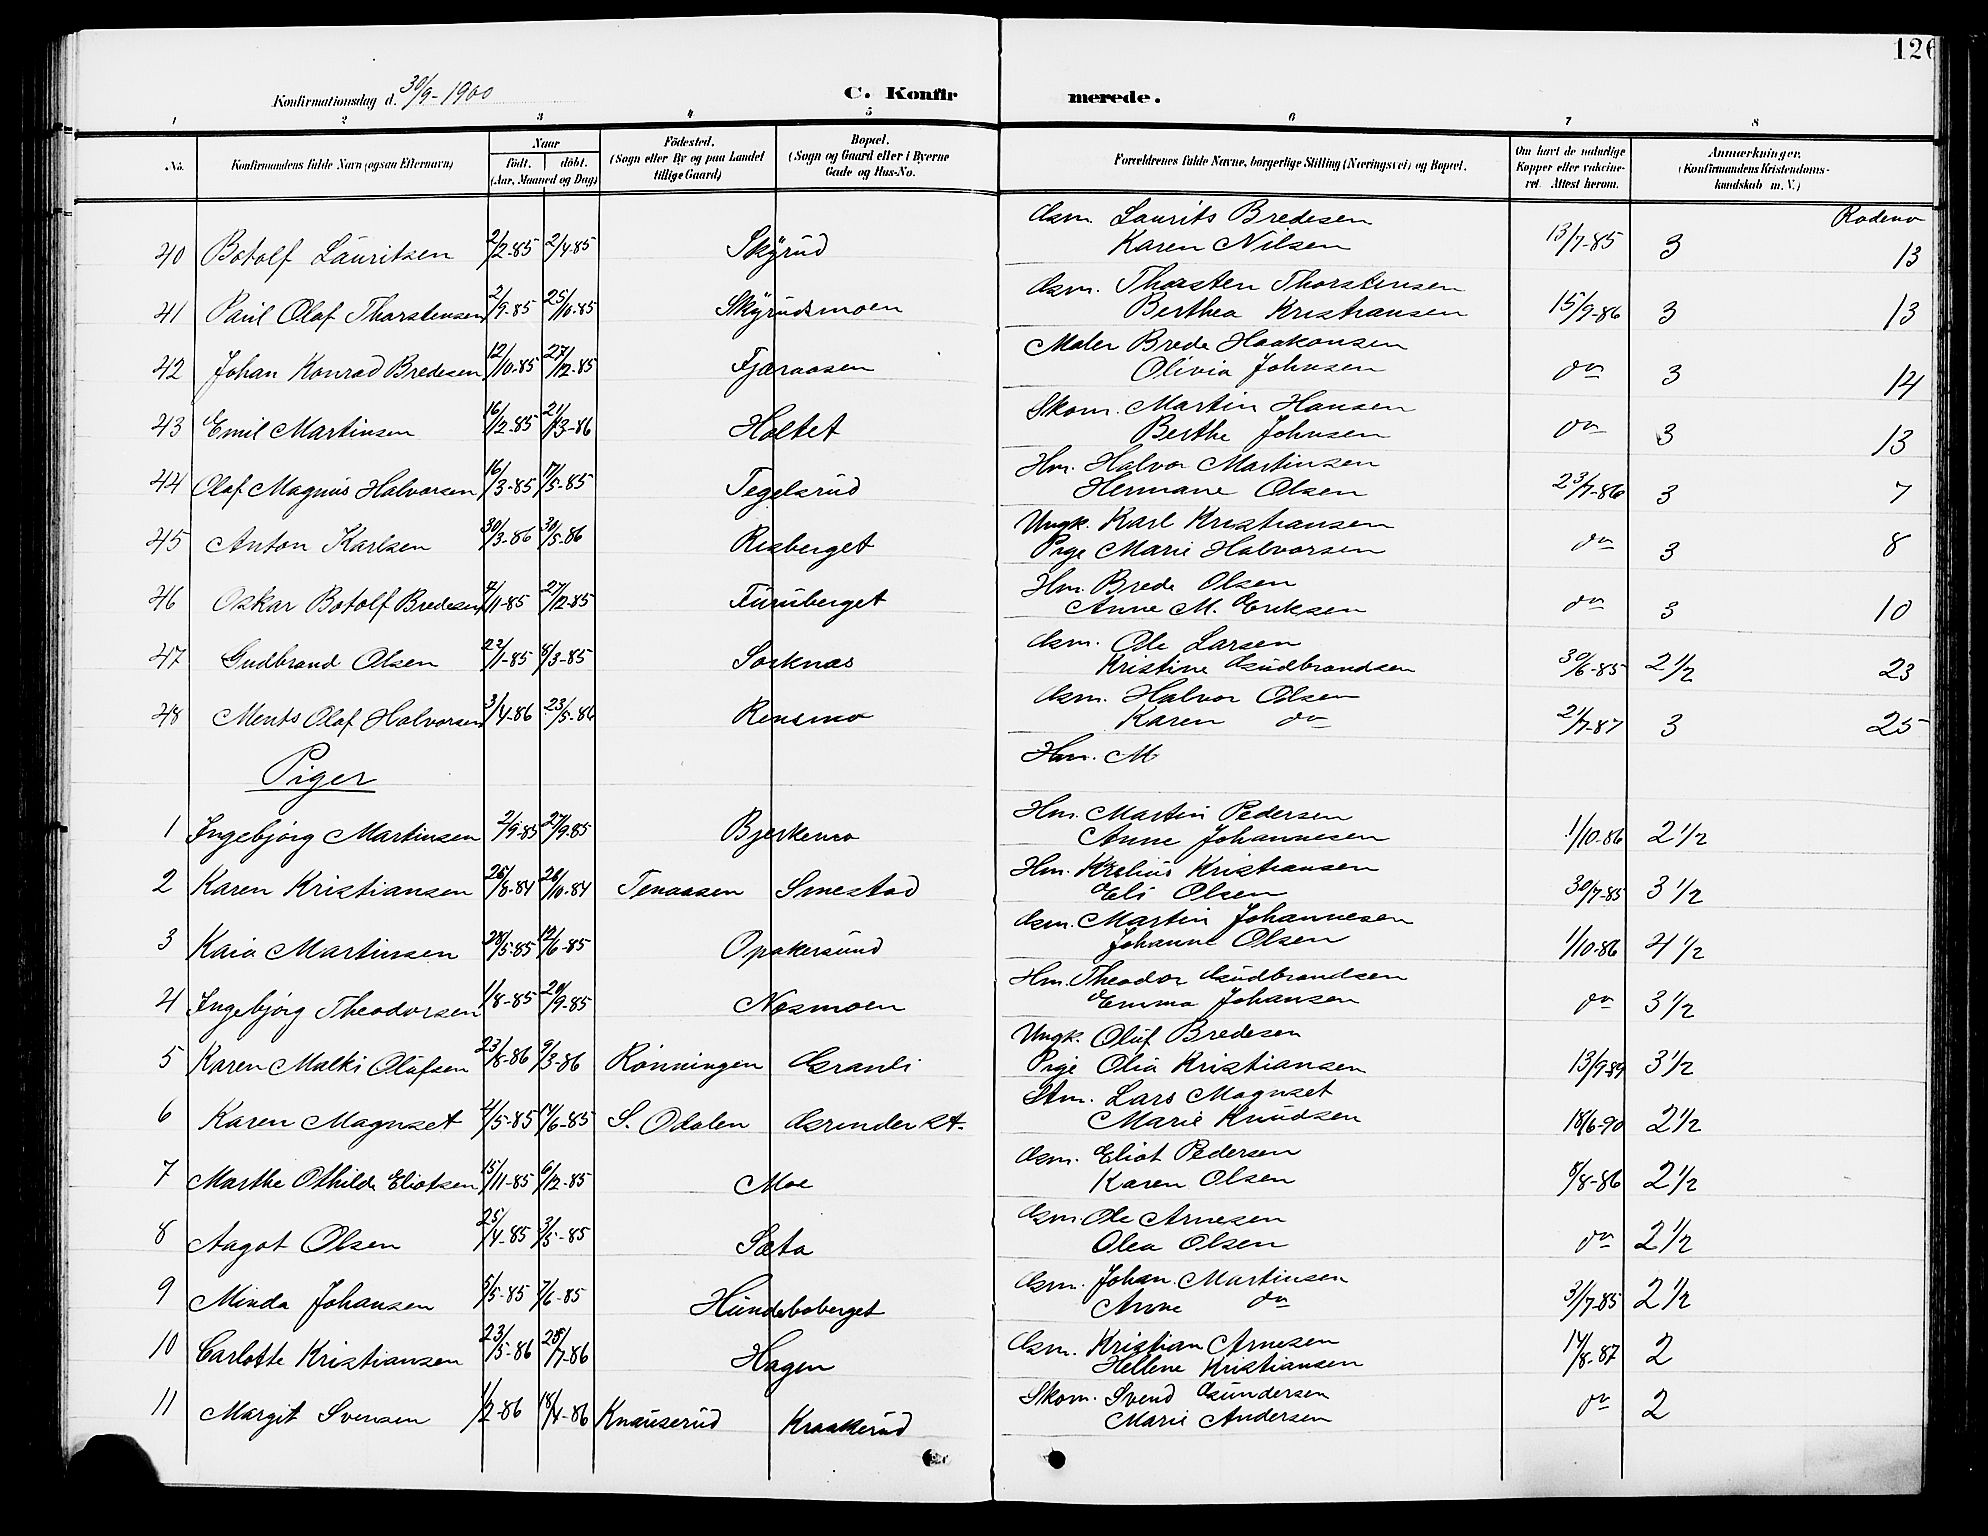 126
Konfirmationsdag d. 30/9-1900
C. Konfirmerede.
1 2 3 4 5 6 7 8
No. Konfirmandens fulde Navn (ogsaa Efternavn) Naar født. døbt. (Aar, Maaned og Dag) Fødested. (Sogn eller By og paa Landet tillige Gaard) Bopæl. (Sogn og Gaard eller i Byerne Gade og Hus-No. Forældrenes fulde Navne, borgerlige Stilling (Næringsvei) og Bopæl. Om havt de naturlige Kopper eller vakcineret. Attest herom. Anmærkninger. (Konfirmandens Kristendomskundskab m. V.)
Rodeno
40 Botolf Lauritsen 2/2-85 2/4-85 Skyrud Gsm. Laurits Bredesen 13/7-85 3 13
Karen Nilsen
41 Paul Olaf Thorstensen 2/9-85 25/10-85 Skyrudsmoen Gsm. Thorsten Thorstensen 15/9-86 3 13
Berthea Kristiansen
42 Johan Konrad Bredesen 12/10-85 27/12-85 Fjæraasen Maler Brede Haakonsen do 3 14
Olivia Johnsen
43 Emil Martinsen 16/12-85 21/3-86 Holtet Skom. Martin Hansen do 3 13
Berthe Johnsen
44 Olaf Magnus Halvorsen 16/3-85 17/5-85 Tegelsrud Hm. Halvor Martinsen 23/7-86 3 7
Hermane Olsen
45 Anton Karlsen 30/3-86 30/5-86 Risberget Ungk. Karl Kristiansen do 3 8
Pige Marie Halvorsen
46 Oskar Botolf Bredesen 11-85 27/12-85 Furuberget Hm. Brede Olsen do 3 10
Anne M. Eriksen
47 Gudbrand Olsen 22/1-85 8/3-85 Sorknæs Gsm. Ole Larsen 30/6-85 2 1/2 23
Kristine Gudbrandsen
48 Ments Olaf Halvorsen 3/4-86 23/5-86 Rensmo Gsm. Halvor Olsen 21/7-87 3 25
Karen do
Hm. M
Piger
1 Ingebjørg Martinsen 2/9-85 27/9-85 Bjerkemo Hm. Martin Pedersen 1/10-86 2 1/2
Anne Johannesen
2 Karen Kristiansen 26/8-84 26/10-84 Tenaasen Smestad Hm. Kristiansen 30/7-85 3 1/2
Eli Olsen
3 Kaia Martinsen 28/5-85 19/6-85 Opakersund Gsm. Martin Johannesen 1/10-86 4 1/2
Johanne Olsen
4 Ingebjørg Theodorsen 1/8-85 20/9-85 Nesmoen Hm. Theodor Gudbrandsen do 3 1/2
Emma Johansen
5 Karen Malki Olufsen 23/8-86 9/3-86 Rønningen Granli Ungk. Oluf Bredesen 13/9-89 3 1/2
Pige Olia Kristiansen
6 Karen Magnset 4/5-85 14/6-85 S. Odalen Grinder st. Stm. Lars Magnset 18/6-90 2 1/2
Marie Knudsen
7 Marthe Othilde Eliotsen 15/11-85 6/12-85 Moe Gsm. Eliot Pedersen 8/8-86 2 1/2
Karen Olsen
8 Aagot Olsen 25/4-85 3/5-85 Sæta Gsm. Ole Arnesen do 2 1/2
Olea Olsen
9 Minda Johansen 5/5-85 7/6-85 Hundeboberget Gsm. Johan Martinsen 31/7-85 2 1/2
Anne do
10 Carlotte Kristiansen 23/5-86 25/7-86 Hagen Gsm. Kristian Arnesen 14/8-87 2
Hellene Kristiansen
11 Margit Svensen 1/2-86 18/4-86 Knauserud Kraakerud Skom. Svend Gundersen do 2
Marie Andersen